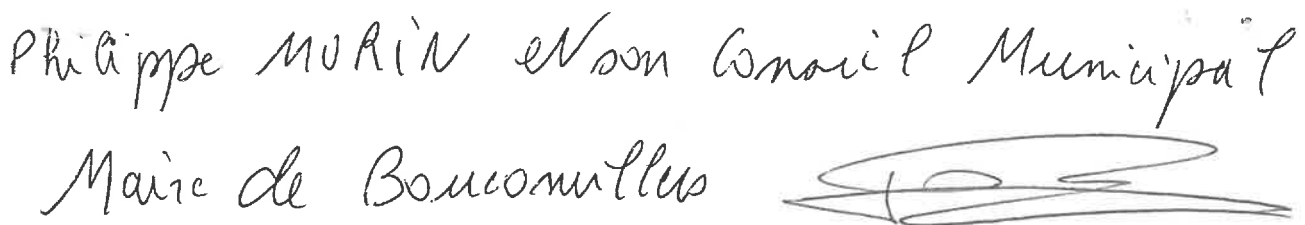 Philippe MORIN et son Conseil Municipal
Maire de Bouconvillers